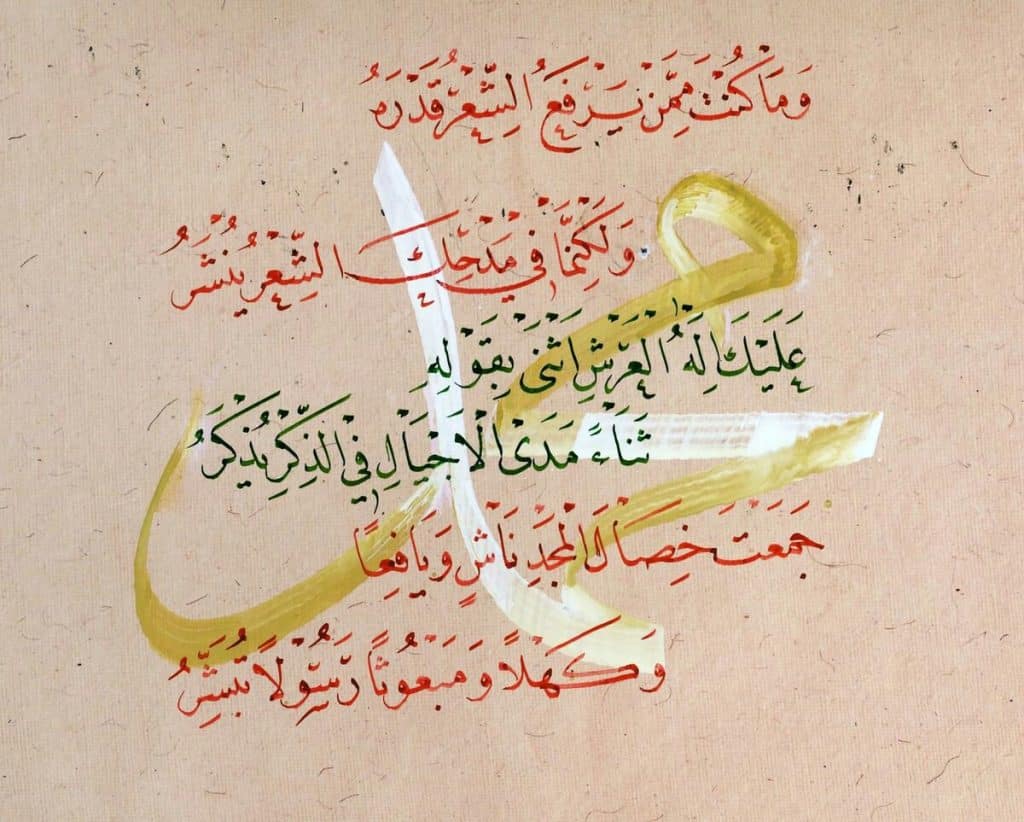 وَمَا كُنْتُ مِمَّنْ يَرْفَعُ الشِّعْرُ قَدْرَهُ
وَلَكِنَّمَا فِي مَدْحِكَ الشِّعْرُ يُنْشَرُ
عَلَيْكَ إِلَهُ الْعَرْشِ أَثْنَى بِقَوْلِهِ
ثَنَاءً مَدَى الْأَجْيَالِ فِي الذِّكْرِ يُذْكَرُ
جَمَعْتَ خِصَالَ الْمَجْدِ نَاشٍ وَيَافِعًا
وَكَهْلًا وَمَبْعُوثًا رَسُولًا تُبَشِّرُ